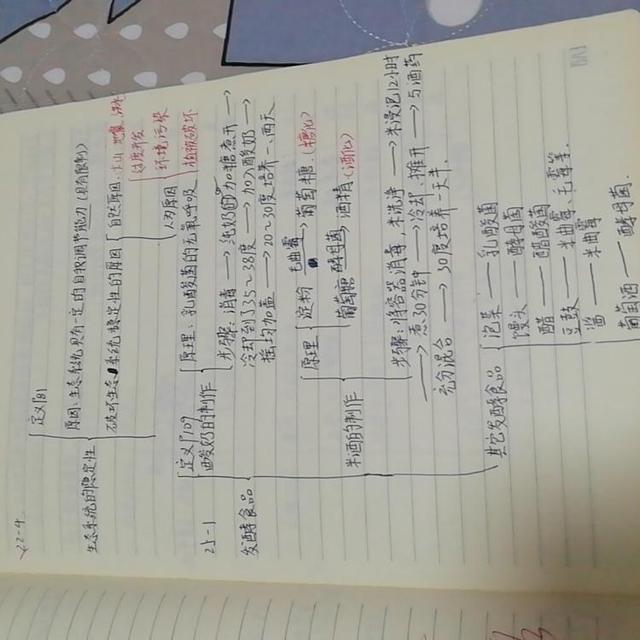 22-4
生态系统的稳定性
定义P81
原因:生态系统具有一定的自我调节能力(具有限制)
破坏生态系统稳定性的原因
自然原因:火山、地震、洪水
人为原因
过度开发
环境污染
植被破坏
25-1
发酵食品
定义P109
酸奶的制作
原理:乳酸菌的无氧呼吸
步骤:消毒→纯奶的加糖煮开→
冷却到了35~38度→加入酸奶→
摇均加盖→20~30度培养一两天
米酒的制作
原理
淀粉 毛曲霉→葡萄糖(糖化)
葡萄糖 酵母菌→酒精(酒化)
步骤:将容器消毒 米洗净→米浸泡12小时
→煮30分钟→冷却、摊开→与酒药
充分混合→30度培养一天半.
其它发酵食品
泡菜——乳酸菌
馒头——酵母菌
醋——醋酸菌
豆鼓——米曲霉、毛霉等.
酱——米曲霉
葡萄酒——酵母菌.